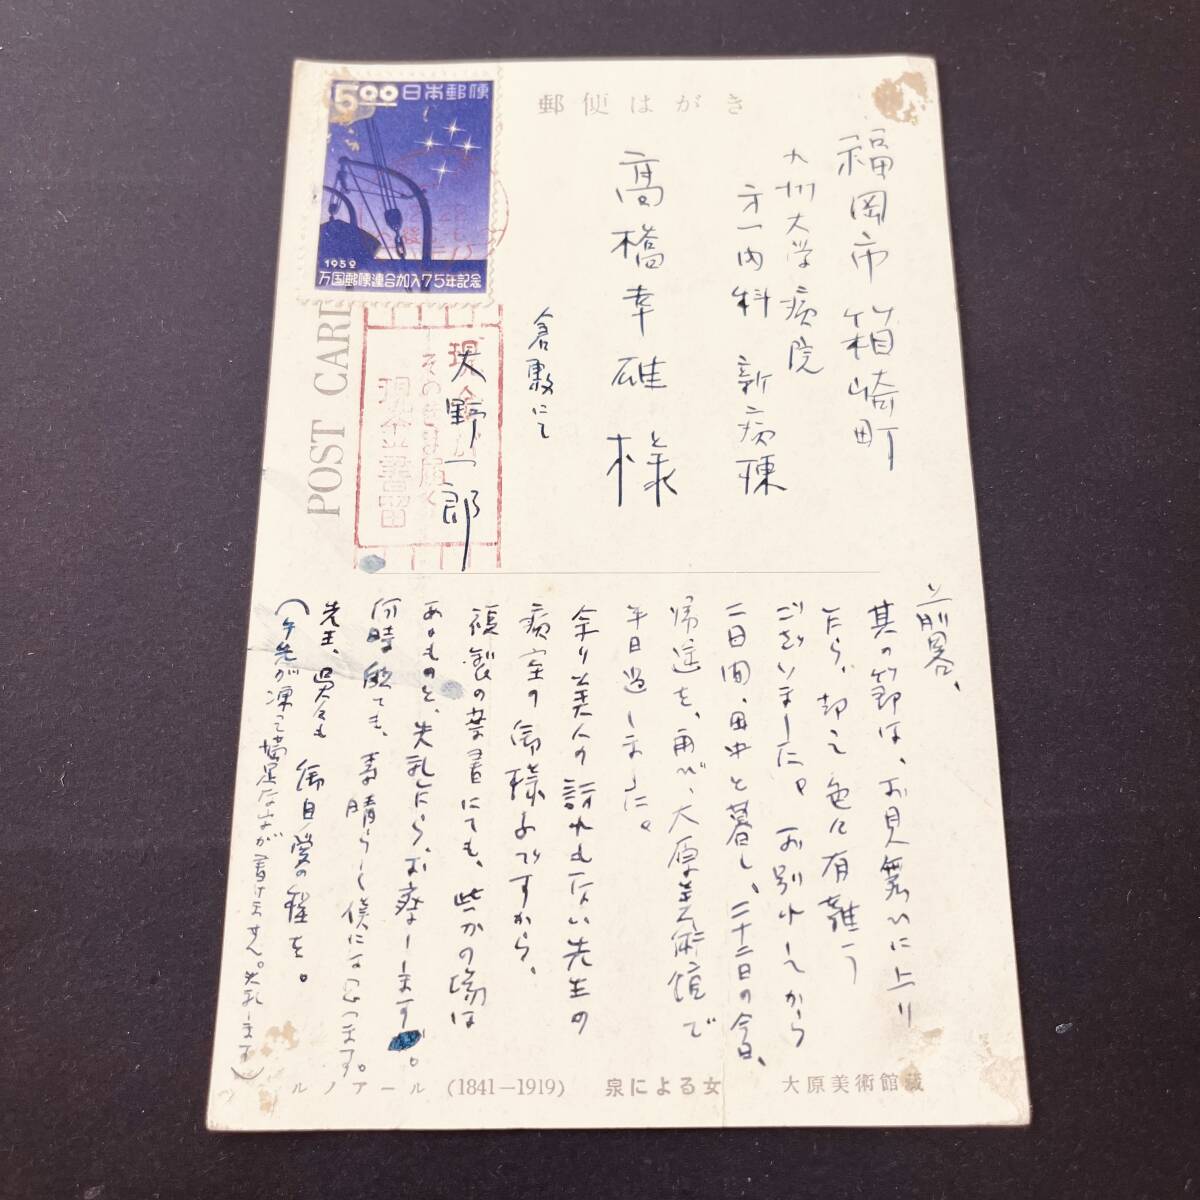 郵便はがき
POST CARD
5.00 日本郵便
1952
万国郵便連合加入75年記念
現金が
そのまま届く
現金書留
福岡市箱崎町
九州大学病院
才一内科 新病棟
高橋幸雄様
倉敷にて
大野一郎
前略、
其の節は、お見舞いに上り
たら、却て色々有難う
ございました。お別れしてから
二日間、田中と暮し、二十二日の今日、
帰途を、再び、大原美術館で
半日過しました。
余り美人の訪れもない先生の
病室の御様子ですから、
複製の葉書にても、些かの場は
あるものと、失礼にもお寄せします。
何時観ても、素晴らしく僕には思へます。
先生、呉々も 御自愛の程を。
(手先が凍って満足な文が書けません。失礼します)
ルノアール (1841-1919) 泉による女 大原美術館蔵